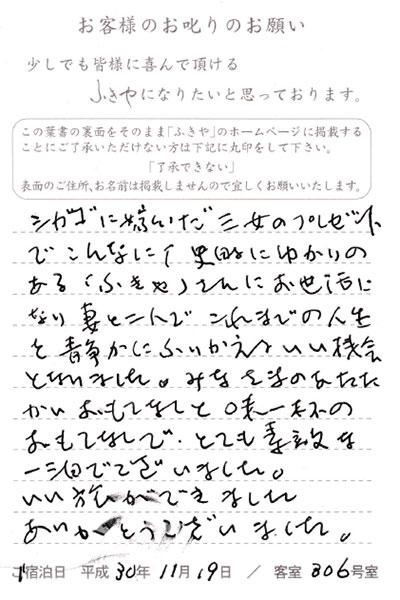 お客様のお叱りのお願い
少しでも皆様に喜んで頂ける
ふきやになりたいと思っております。
この葉書の裏面をそのまま「ふきや」のホームページに掲載する
ことにご了承いただけない方は下記に丸印をして下さい。
「了承できない」
表面のご住所、お名前は掲載しませんので宜しくお願いいたします。
に嫁いだ三女のプレゼント
でこんなに史的にゆかりの
ある「ふきや」さんにお世話に
なり妻と二人でこれまでの人生
を静かにふりかえるいい機会
となりました。みなさまのあたた
かいおもてなしと味一杯の
おもてなしで、とても素敵な
一泊でございました。
いい旅ができました
ありがとうございました。
ご宿泊日 平成30年11月19日 / 客室306号室